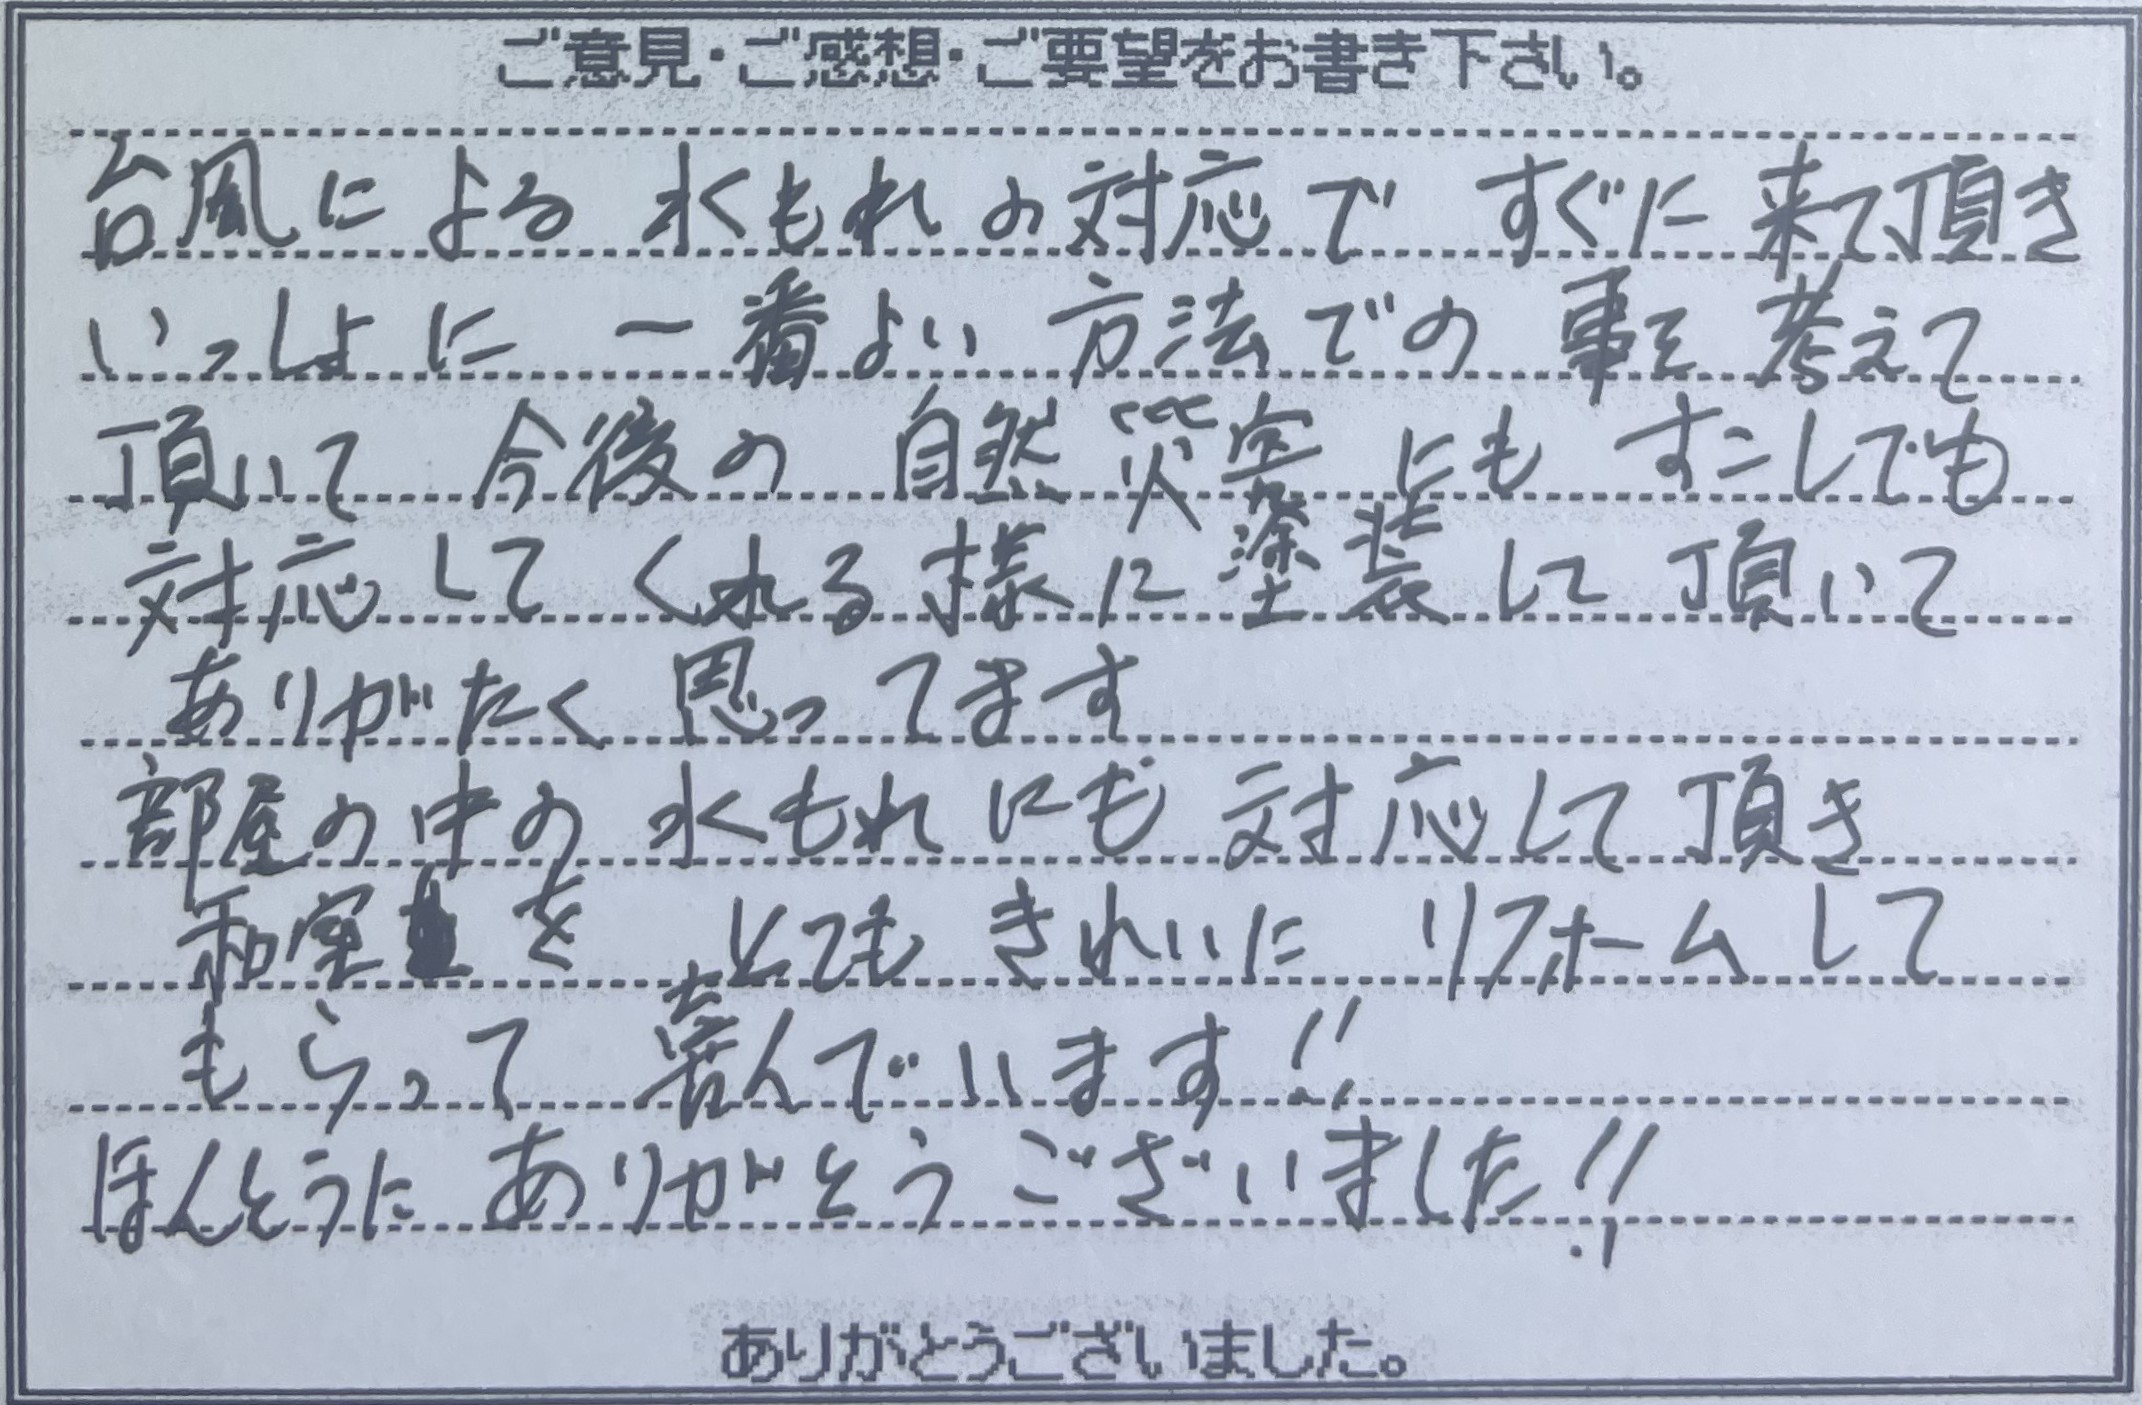 ご意見・ご感想・ご要望をお書き下さい。
台風による 水もれの対応で すぐに 来て頂き
いっしょに 一番よい 方法での 事を 考えて
頂いて 今後の 自然 災害 にも すこしでも
対応して くれる様に 塗装して 頂いて
ありがたく 思ってます
部屋の中の 水もれにも 対応して 頂き
和室を とても きれいに リフォームして
もらって 喜んでいます!!
ほんとうに ありがとう ございました!!
ありがとうございました。